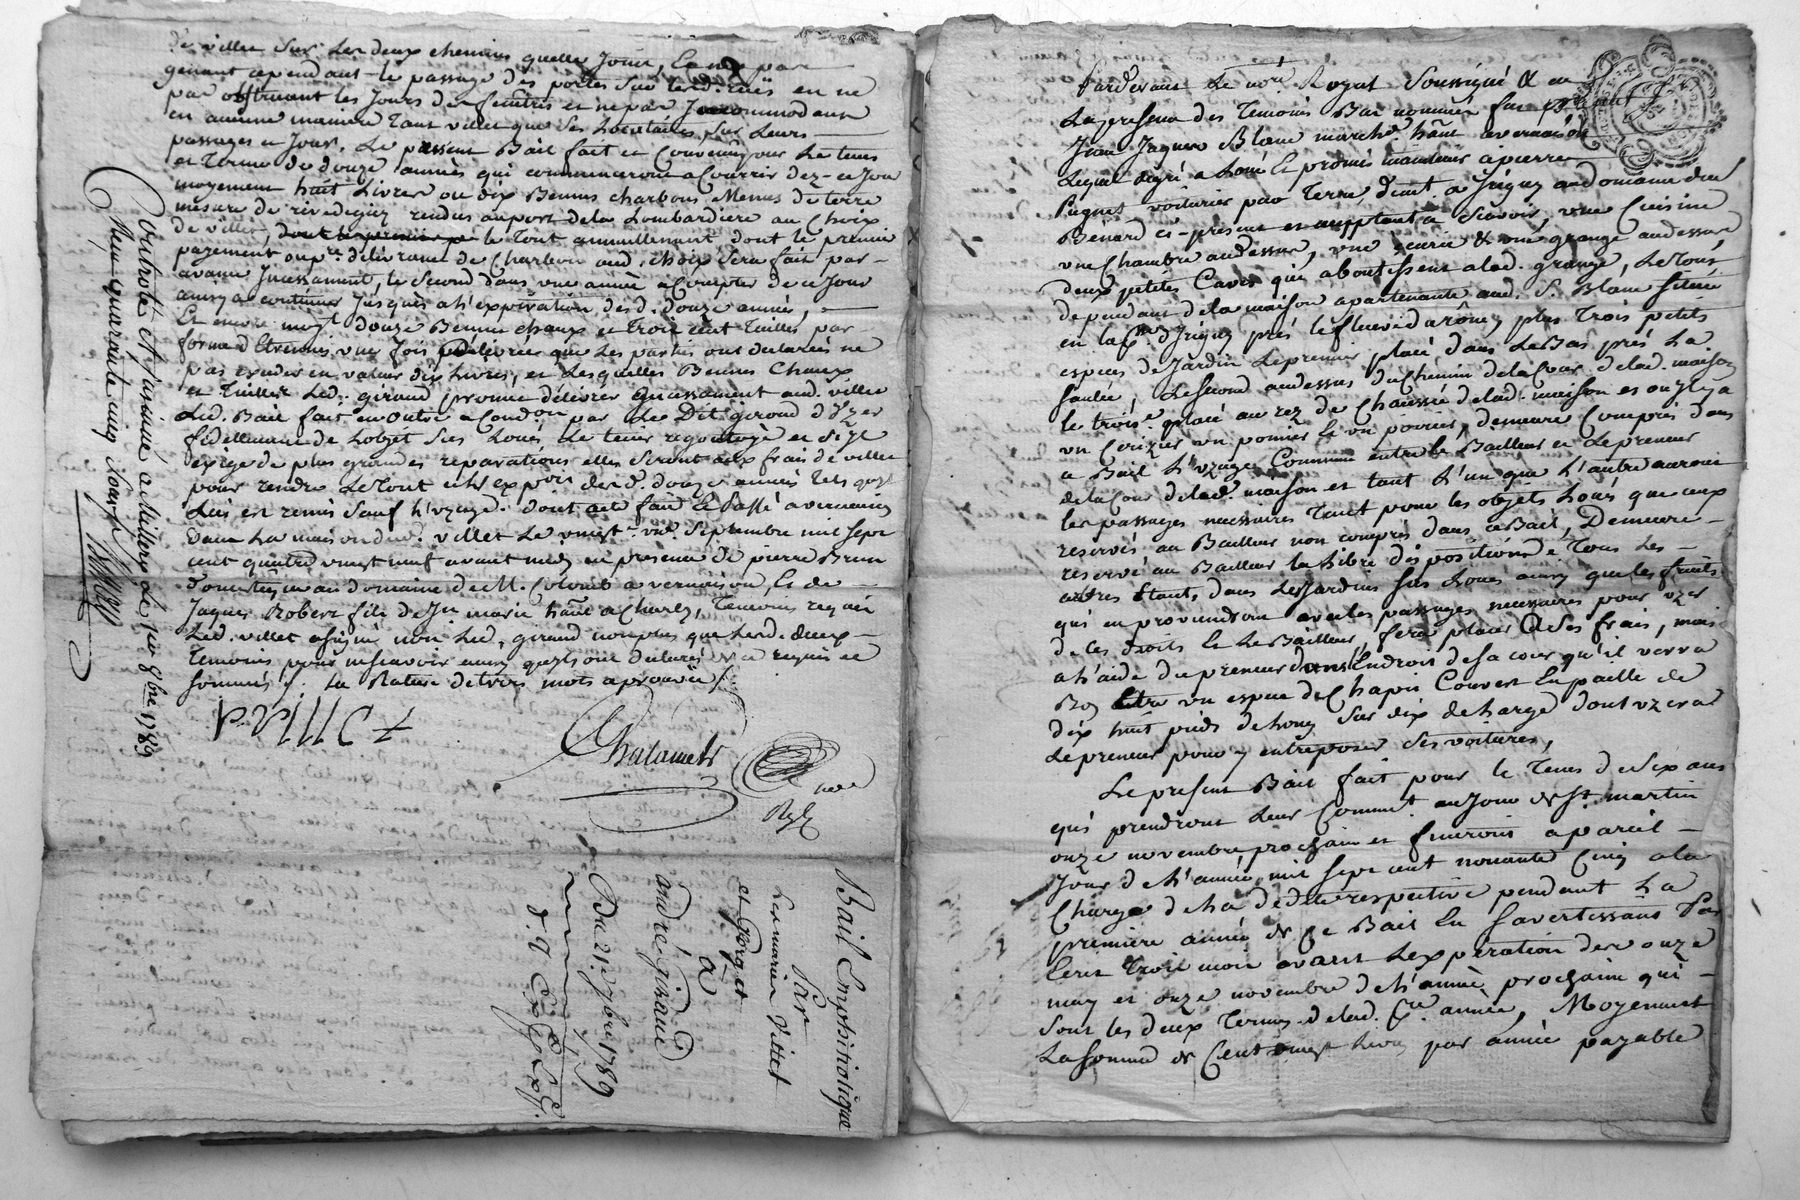 de villet sur les deux chemins quelle joint, le
genant cependant le passage des portes sur lesd. rues en ne
par obstruant les jours des fenêtres et ne par Jncommodant
en aucune maniere tant villet que ses Locataires sur Leurs
passages et Jours. Le present Bail fait et Convenu pour le tems
et terme de douze années qui commenceront a Courrir dez ce Jour
moyenent huit Livres ou dix Bennes charbons Menus de terre
mesure de rivedegier rendus au port dela Lombardiere au Choix
de villet, le tout annuellement dont le premier
payement ou delivrance de Charbon aud. choix sera fait par
avance Jncessament, le second dans une année a Compter de ce Jour
ainsy a continuer Jusques a l'expiration desd. douze années,
Et encore moyt douze Bennes chaux et trois cent tuilles par
forme d'Etrennes une fois délivrées que les parties ont declarées ne
pas exceder en valeur dix livres, et lesquelles Bennes Chaux
et tuilles led. giraud promet délivrer Jncessament aud. villet
Led. Bail fait en outre a Condon par le Dit giraud d'Uzer
fidellement de l'objet sus Loués Le tenir regoutoyé et s'izl
exige de plus grandes reparations elles seront aux frais de villet
pour rendre le tout a l'expion desd. douze années tels qu'yl
Luis est remis sauf l'uzage. dont acte fait et Passé a vernaison
dans La maison dud. villet Le vingt un Septembre mil sept
cent quatre vingt neuf avant midy en presence de pierre Brun
domestique au domaine de M. Colomb a vernaison, Et de
Jaques Robert fils de Jn marie hant a Charly, temoins requis
Led. villet a signé non Led. giraud non plus que Lesd. deux
temoins pour ne sçavoir ainsy qu'yls ont declarés de ce requis et
sommés /. La Rature de trois mots aprouvée /.
Villet
Chalamels
Controlé et insinué a Millery le pr 8bre 1789
Reçu quarante cinq sous
Bail Emphitiotique
Par
Les mariés Villet
et Poyet
à
andré giraud
Du 21. 7bre 1789
Pardevant Le nore Royal Soussigné & en
La presence des Temoins Bas nommés fut present
Jean Jaques Blanc marchd hant a vernaison
Lequel de gré a loué Et promis maintenir à pierre
Paquet voiturier par Terre, dmt a Jrigny au domaine du
Bénard ci-present et acceptant a Scavoir, une Cuisine
une Chambre au dessus, une ecurie & une grange au dessus
deux petites Caves qui aboutissent a lad. grange, Le tout
dependant de la maison apartenante aud. S. Blanc située
en lad. psse d'Jrigny près le fleuve du rône, plus Trois petits
especes de Jardin Le premier placé dans Le Bas près La
saulée, Le second au dessus du Chemin dela Cour de lad. maison
le troise. placé au rez de Chaussée de lad. maison et ou yl y a
un Cerizier un pomier & un poirier, demeure Compris dans
ce Bail l'uzage Commun entre le Bailleur et Le preneur
de la Cour de lad. maison et tant l'un que l'autre auront
les passages necessaires Tant pour les objets Loués que ceux
reservés au Bailleur non compris dans ce Bail, Demeure
reservé au Bailleur la libre disposition de Tous Les
arbres étants dans Les Jardins sus Loués ainsy que les fruits
qui en proviendront avec les passages necessaires pour uzer
de ces droits Et Le Bailleur, fera placer a ses frais, mais
a l'aide du preneur dans l'Endroit de sa cour qu'il verra
Bon Etre un espece de Chapis Couvert En paille de
dix huit pieds de long sur dix de large dont uzera
Le preneur pour y entreposer Ses voitures,
Le present Bail fait pour le Tems de Six ans
qui prendront Leur Commt. au Jour de St. martin
onze novembre prochain et finiront a pareil
Jour de l'année mil sept cent nonante Cinq a la
Charge de la dedite respective pendant La
premiere année de ce Bail En s'avertissant Par
Ecrit trois mois avant l'expiration des onze
may et onze novembre de l'année prochaine qui
sont les deux Termes de lad. pre. année, Moyenent
La somme de Cent vingt Livres par année payable